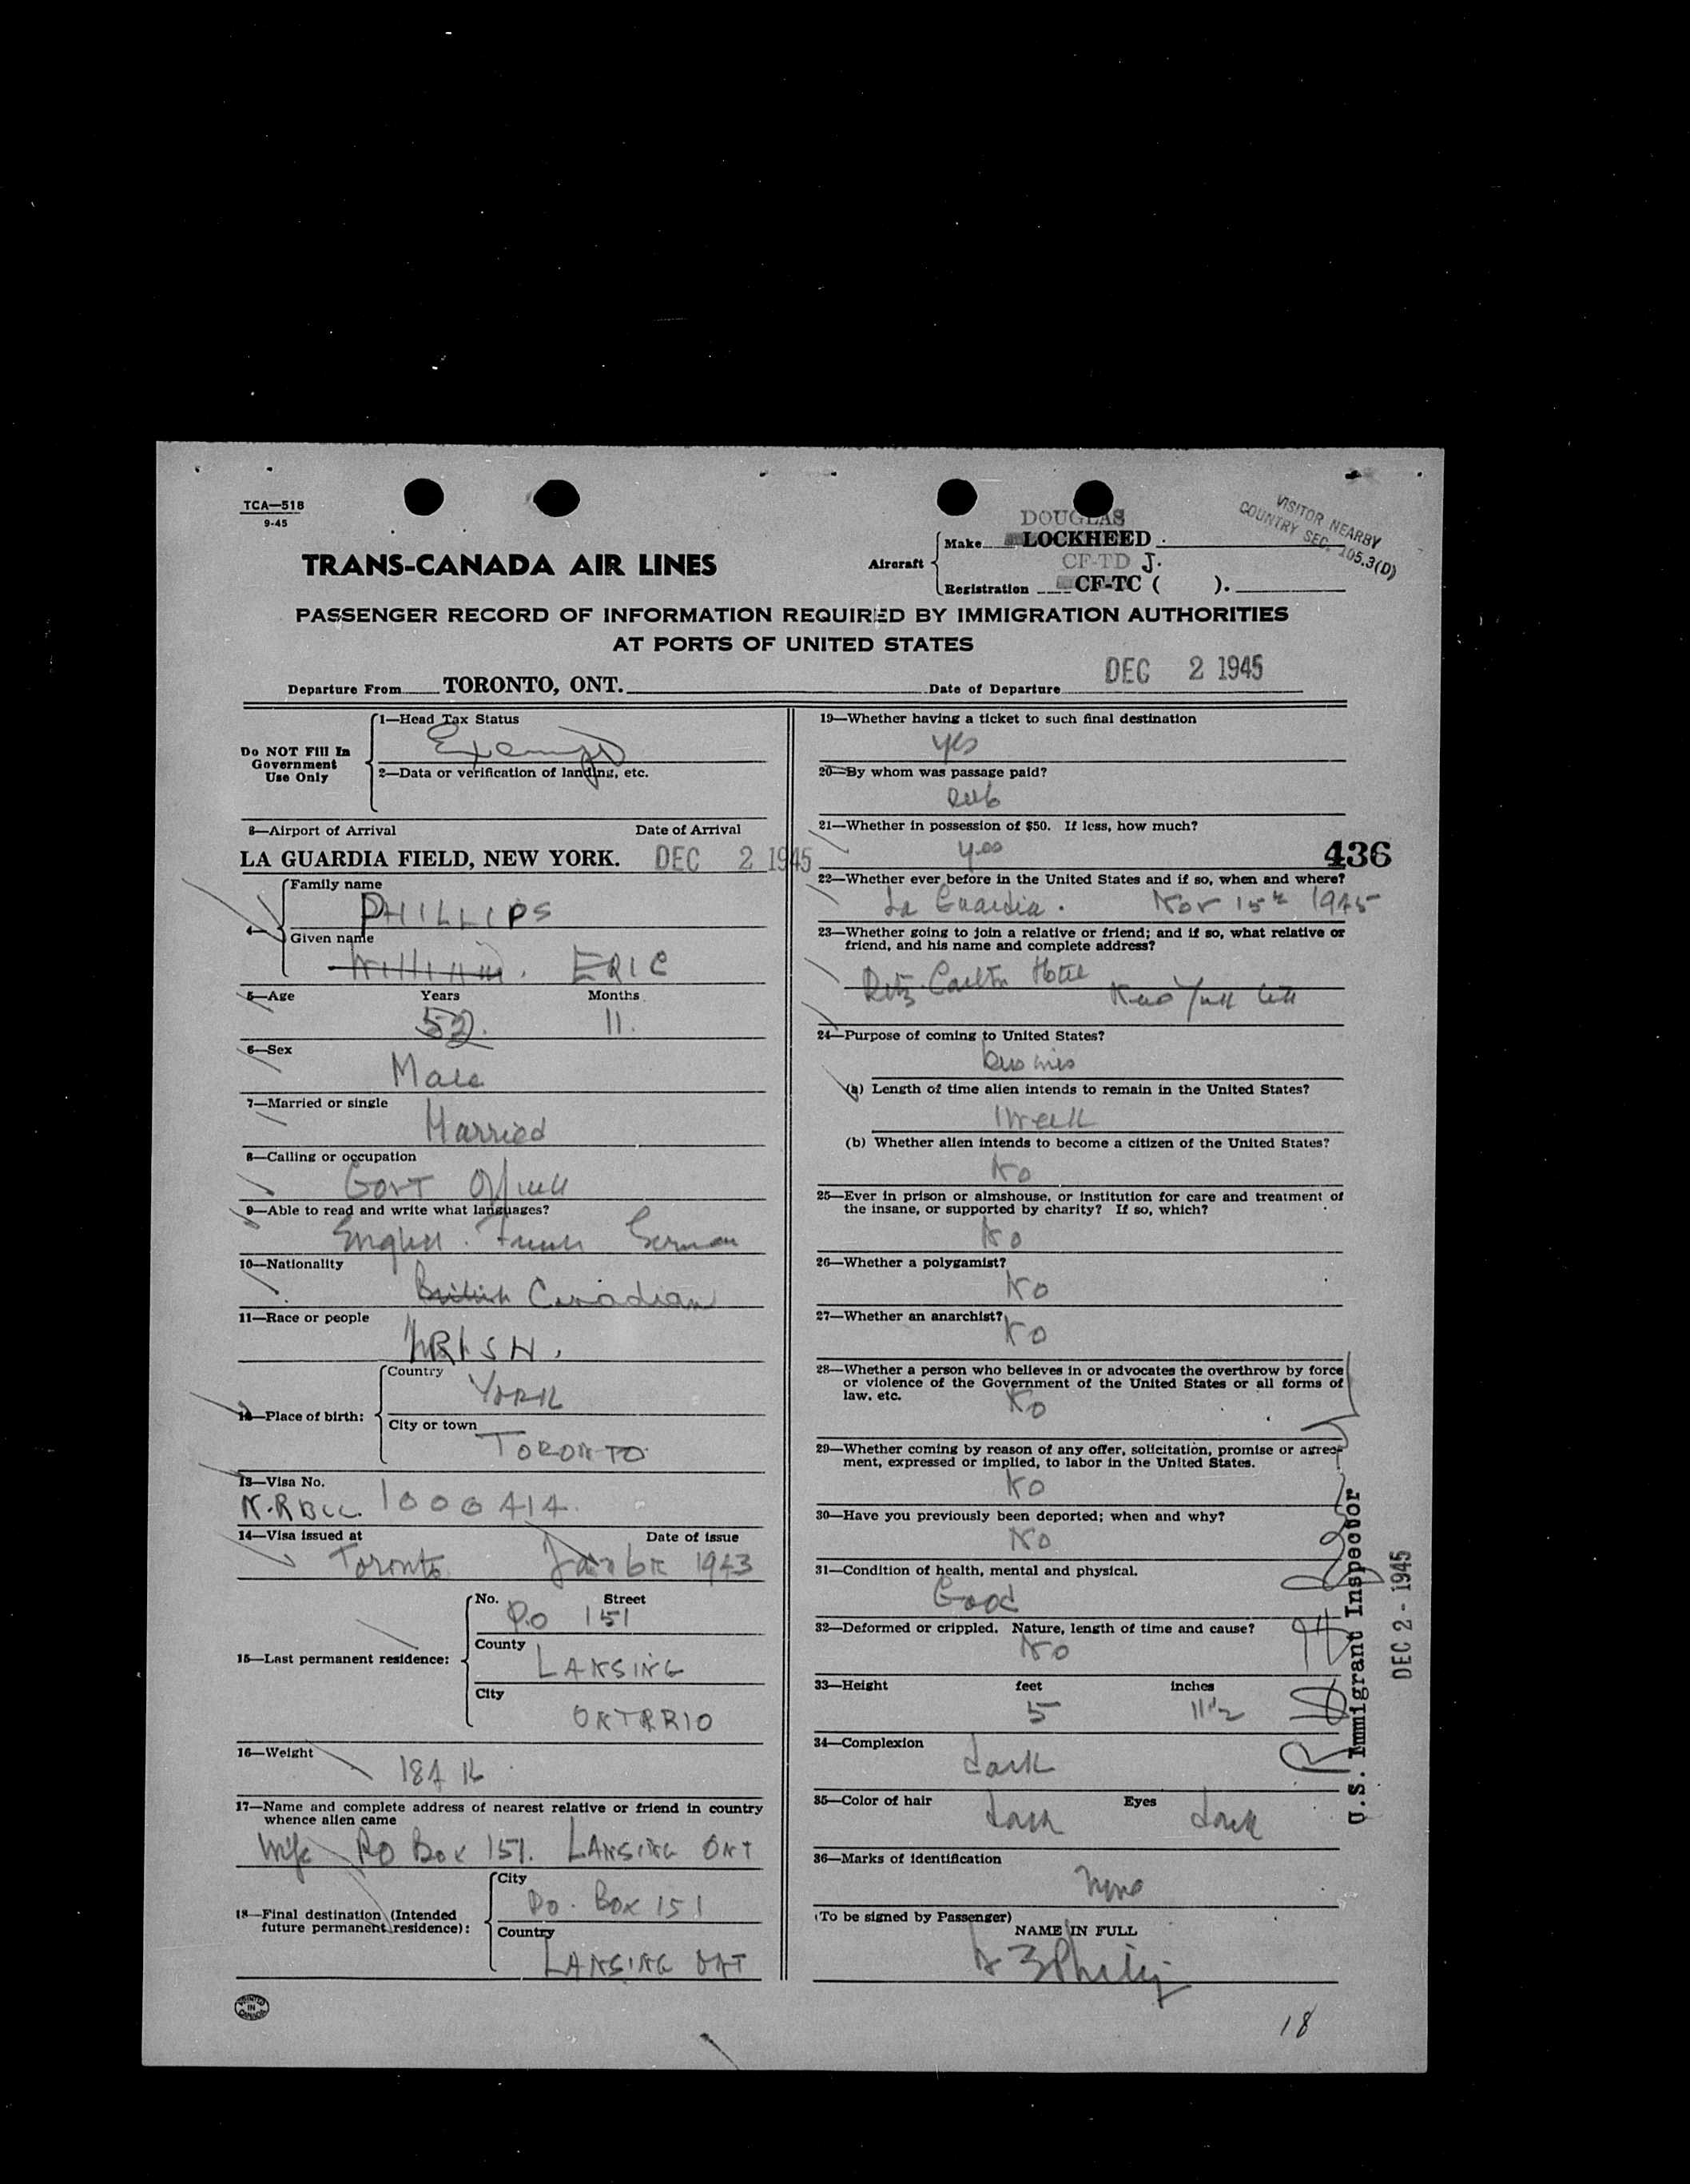 TCA—518
9-45
DOUGLAS
Make LOCKHEED
VISITOR NEARBY
COUNTRY SEC. 105.3(D)
TRANS-CANADA AIR LINES
Aircraft
CF-TD J.
Registration CF-TC ( ).
PASSENGER RECORD OF INFORMATION REQUIRED BY IMMIGRATION AUTHORITIES
AT PORTS OF UNITED STATES
Departure From TORONTO, ONT. Date of Departure DEC 2 1945
Do NOT Fill In
Government
Use Only
1—Head Tax Status
Exempt
2—Data or verification of landing, etc.
3—Airport of Arrival Date of Arrival
LA GUARDIA FIELD, NEW YORK. DEC 2 1945
4—
Family name
PHILLIPS
Given name
William. ERIC
5—Age Years Months
52. 11.
6—Sex
Male
7—Married or single
Married
8—Calling or occupation
Govt
9—Able to read and write what languages?
English. French German
10—Nationality
British Canadian
11—Race or people
IRISH.
12—Place of birth:
Country
YORK
City or town
TORONTO
13—Visa No.
N.R.B.C.C. 1000414.
14—Visa issued at Date of issue
Toronto 1943
15—Last permanent residence:
No. Street
P.O 151
County
LANSING
City
ONTARIO
16—Weight
184 lb
17—Name and complete address of nearest relative or friend in country
whence alien came
Wife PO Box 151. LANSING ONT
18—Final destination (Intended
future permanent residence):
City
Po. Box 151
Country
LANSING ONT
PRINTED
IN
CANADA
19—Whether having a ticket to such final destination
yes
20—By whom was passage paid?
21—Whether in possession of $50. If less, how much?
yes
436
22—Whether ever before in the United States and if so, when and where?
La Guardia. Nov 15th 1945
23—Whether going to join a relative or friend; and if so, what relative or
friend, and his name and complete address?
Ritz-Carlton Hotel
New York City
24—Purpose of coming to United States?
business
(a) Length of time alien intends to remain in the United States?
1 Week
(b) Whether alien intends to become a citizen of the United States?
No
25—Ever in prison or almshouse, or institution for care and treatment of
the insane, or supported by charity? If so, which?
No
26—Whether a polygamist?
No
27—Whether an anarchist?
No
28—Whether a person who believes in or advocates the overthrow by force
or violence of the Government of the United States or all forms of
law, etc.
No
29—Whether coming by reason of any offer, solicitation, promise or agree-
ment, expressed or implied, to labor in the United States.
No
30—Have you previously been deported; when and why?
No
31—Condition of health, mental and physical.
Good
32—Deformed or crippled. Nature, length of time and cause?
No
33—Height feet inches
5 11 1/2
34—Complexion
dark
35—Color of hair Eyes
dark dark
36—Marks of identification
None
(To be signed by Passenger)
NAME IN FULL
U.S. Immigrant Inspector
DEC 2 - 1945
18